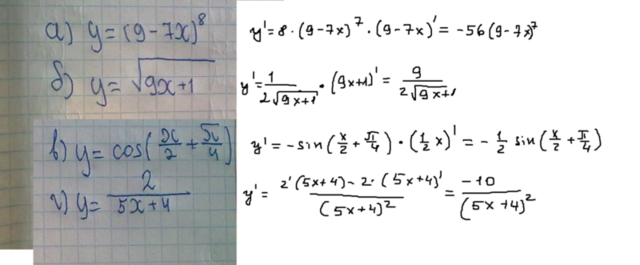 а) y=(9-7x)^8 y'=8·(9-7x)^7·(9-7x)'=-56(9-7x)^7
б) y=√(9x+1) y'=1/(2√(9x+1))·(9x+1)'=9/(2√(9x+1))
в) y=cos(x/2+π/4) y'=-sin(x/2+π/4)·(1/2 x)'=-1/2 sin(x/2+π/4)
г) y=2/(5x+4) y'=(2'(5x+4)-2·(5x+4)')/(5x+4)^2=-10/(5x+4)^2